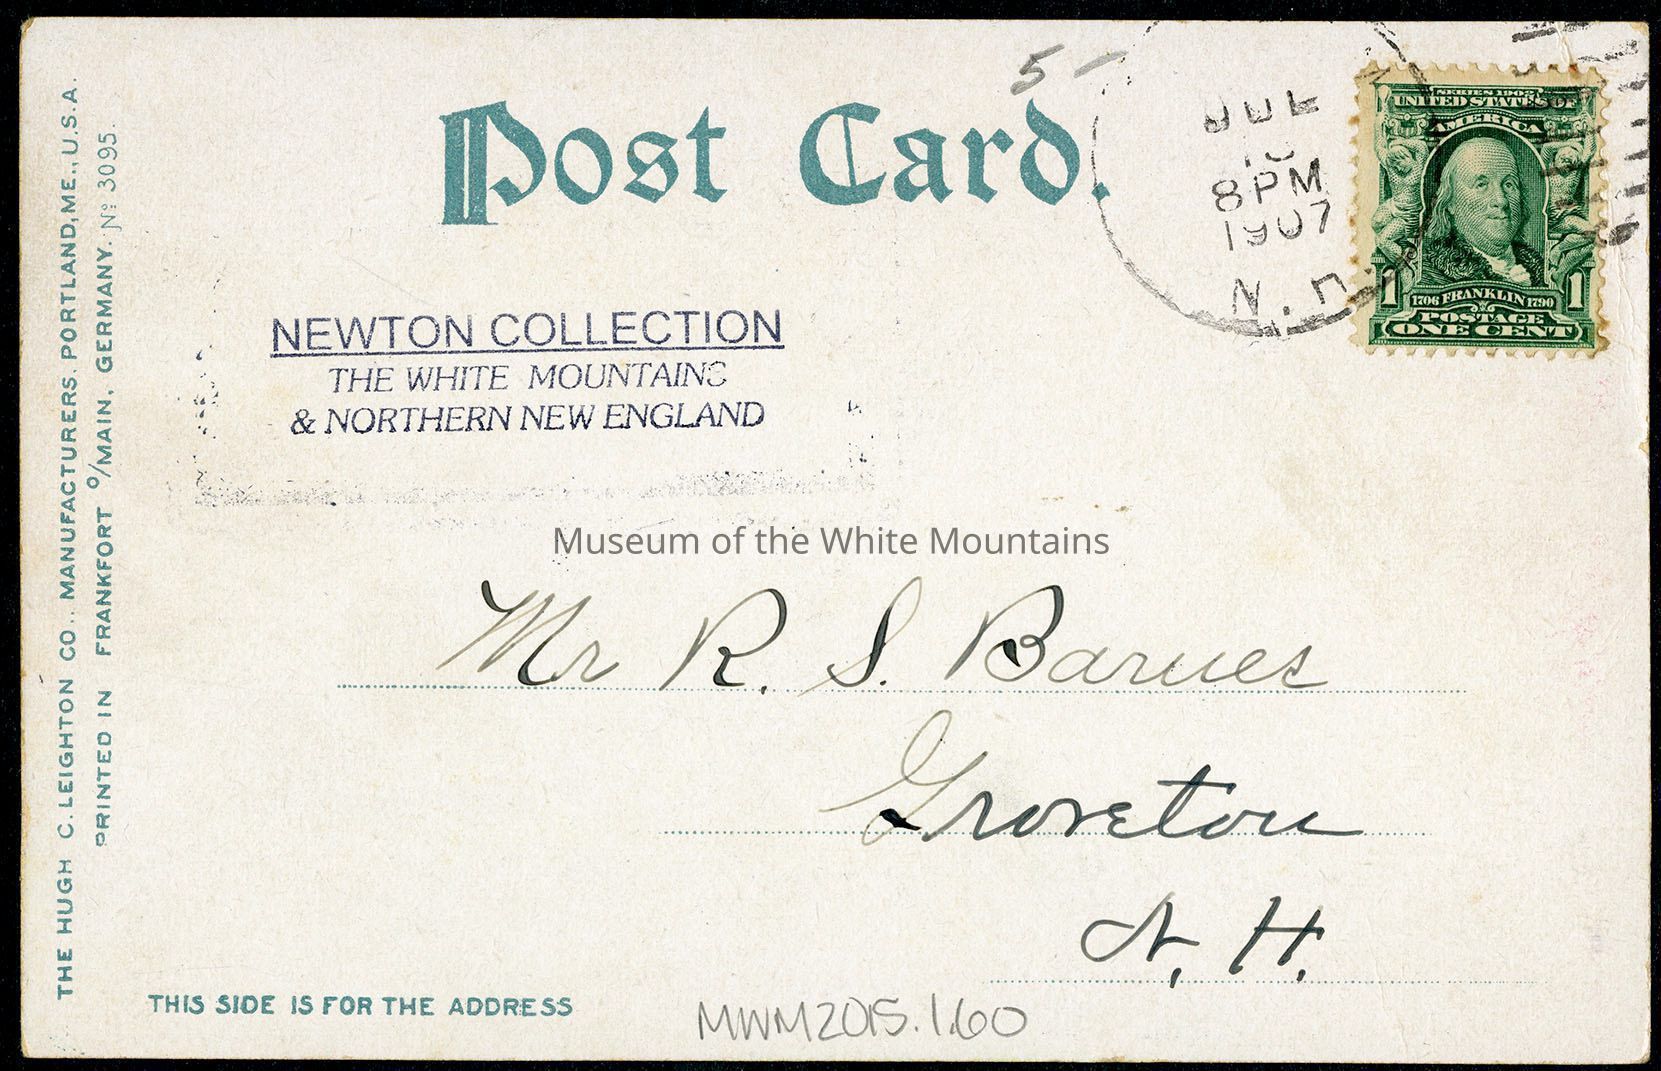 5-
Post Card.
JUL
8 PM
1907
N.H.
SERIES 1902
UNITED STATES OF
AMERICA
1706 FRANKLIN 1790
1 1
POSTAGE
ONE CENT
NEWTON COLLECTION
THE WHITE MOUNTAINS
& NORTHERN NEW ENGLAND
Museum of the White Mountains
Mr R. S. Barnes
Groveton
N. H.
THE HUGH C. LEIGHTON CO., MANUFACTURERS, PORTLAND, ME., U.S.A.
PRINTED IN FRANKFORT o/MAIN, GERMANY. No 3095.
THIS SIDE IS FOR THE ADDRESS
MWM2015.1.60